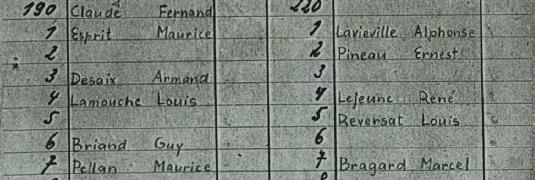 190 Claude Fernand
1 Esprit Maurice
2
3 Desaix Armand
4 Lamouche Louis
5
6 Briand Guy
7 Pellan Maurice
220
1 Lavieville Alphonse
2 Pineau Ernest
3
4 Lejeune René
5 Reversat Louis
6
7 Bragard Marcel